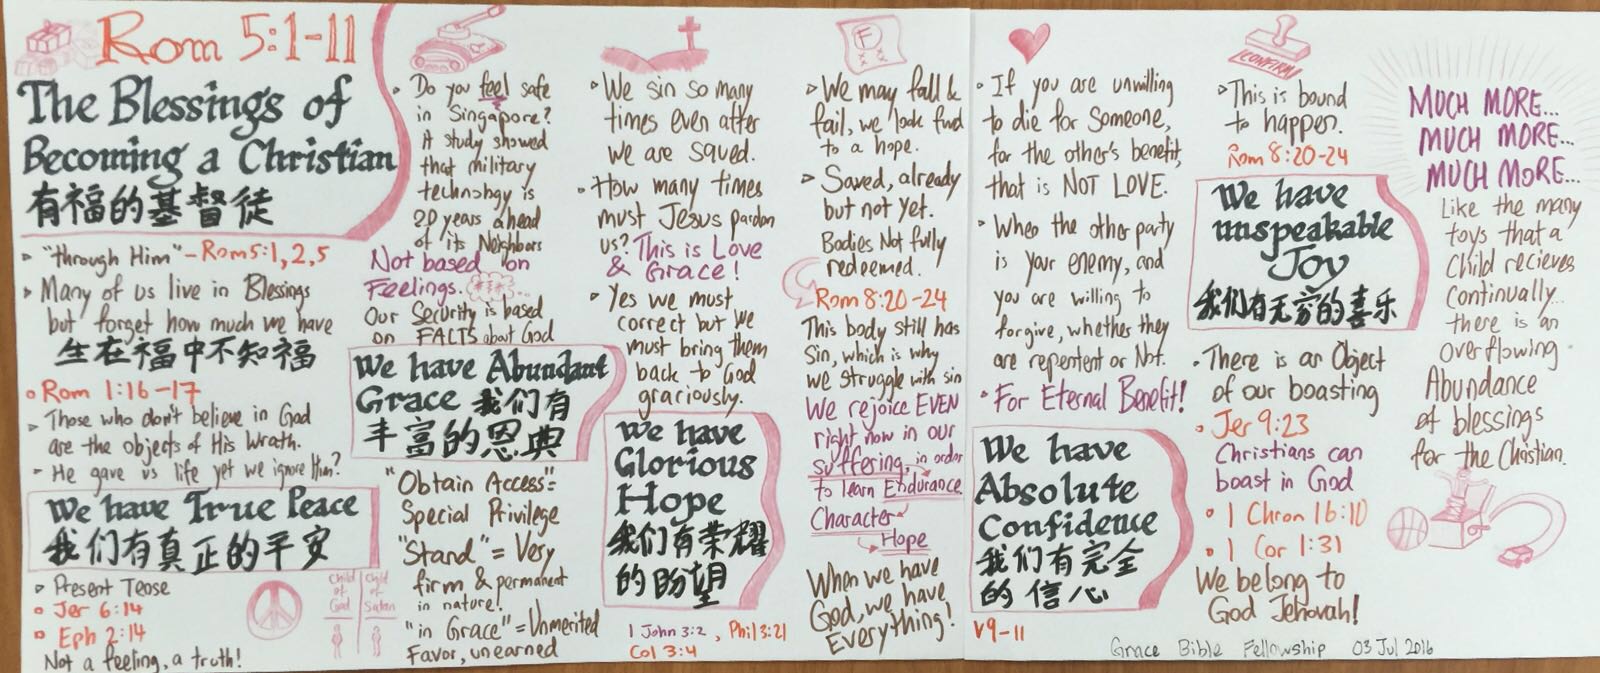 Rom 5:1-11
The Blessings of
Becoming a Christian
有福的基督徒
"through Him" - Rom5:1,2,5
Many of us live in Blessings
but forget how much we have
生在福中不知福
Rom 1:16-17
Those who don't believe in God
are the objects of His Wrath.
He gave us life yet we ignore Him?
We have True Peace
我们有真正的平安
Present Tense
Jer 6:14
Eph 2:14
Not a feeling, a truth!
Child
of
God
Child
of
Satan
Do you feel safe
in Singapore?
A study showed
that military
technology is
20 years ahead
of its Neighbors
Not based on
Feelings.
Our Security is based
on FACTS about God
We have Abundant
Grace 我们有
丰富的恩典
"Obtain Access"=
Special Privilege
"Stand" = Very
firm & permanent
in nature!
"in Grace" = Unmerited
Favor, unearned
We sin so many
times even after
we are saved.
How many times
must Jesus pardon
us? This is Love
& Grace!
Yes we must
correct but we
must bring them
back to God
graciously.
We have
Glorious
Hope
我们有荣耀
的盼望
1 John 3:2, Phil 3:21
Col 3:4
F
We may fall &
fail, we look fwd
to a hope.
Saved, already
but not yet.
Bodies Not fully
redeemed.
Rom 8:20-24
This body still has
Sin, which is why
we struggle with sin
We rejoice EVEN
right now in our
suffering, in order
to learn Endurance
Character
Hope
When we have
God, we have
Everything!
If you are unwilling
to die for someone,
for the other's benefit,
that is NOT LOVE.
When the other party
is your enemy, and
you are willing to
forgive, whether they
are repentent or Not.
For Eternal Benefit!
We have
Absolute
Confidence
我们有完全
的信心
V9-11
CONFIRM
This is bound
to happen.
Rom 8:20-24
We have
unspeakable
Joy
我们有无穷的喜乐
There is an Object
of our boasting
Jer 9:23
Christians can
boast in God
1 Chron 16:10
1 Cor 1:31
We belong to
God Jehovah!
MUCH MORE...
MUCH MORE...
MUCH MORE...
Like the many
toys that a
Child recieves
Continually...
there is an
overflowing
Abundance
of blessings
for the Christian.
Grace Bible Fellowship 03 Jul 2016